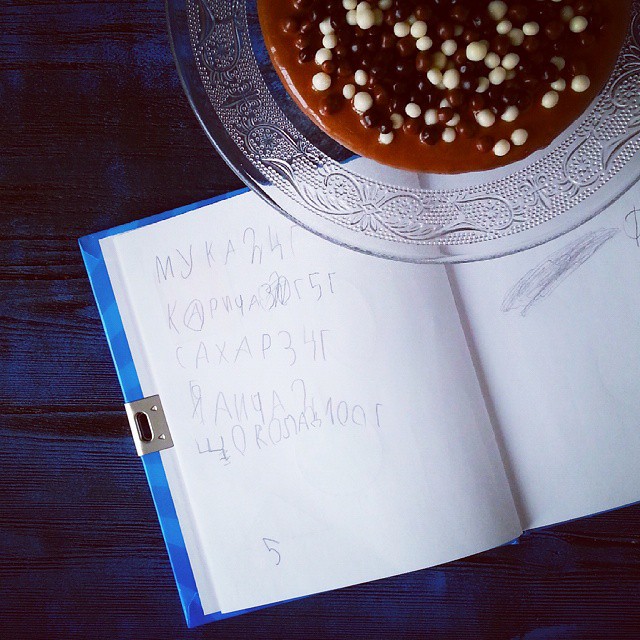 МУКА 34Г
КОРИЧА 5Г
САХАР 34Г
ЯАИЧА 2
ЩОКОЛАД 100Г
5